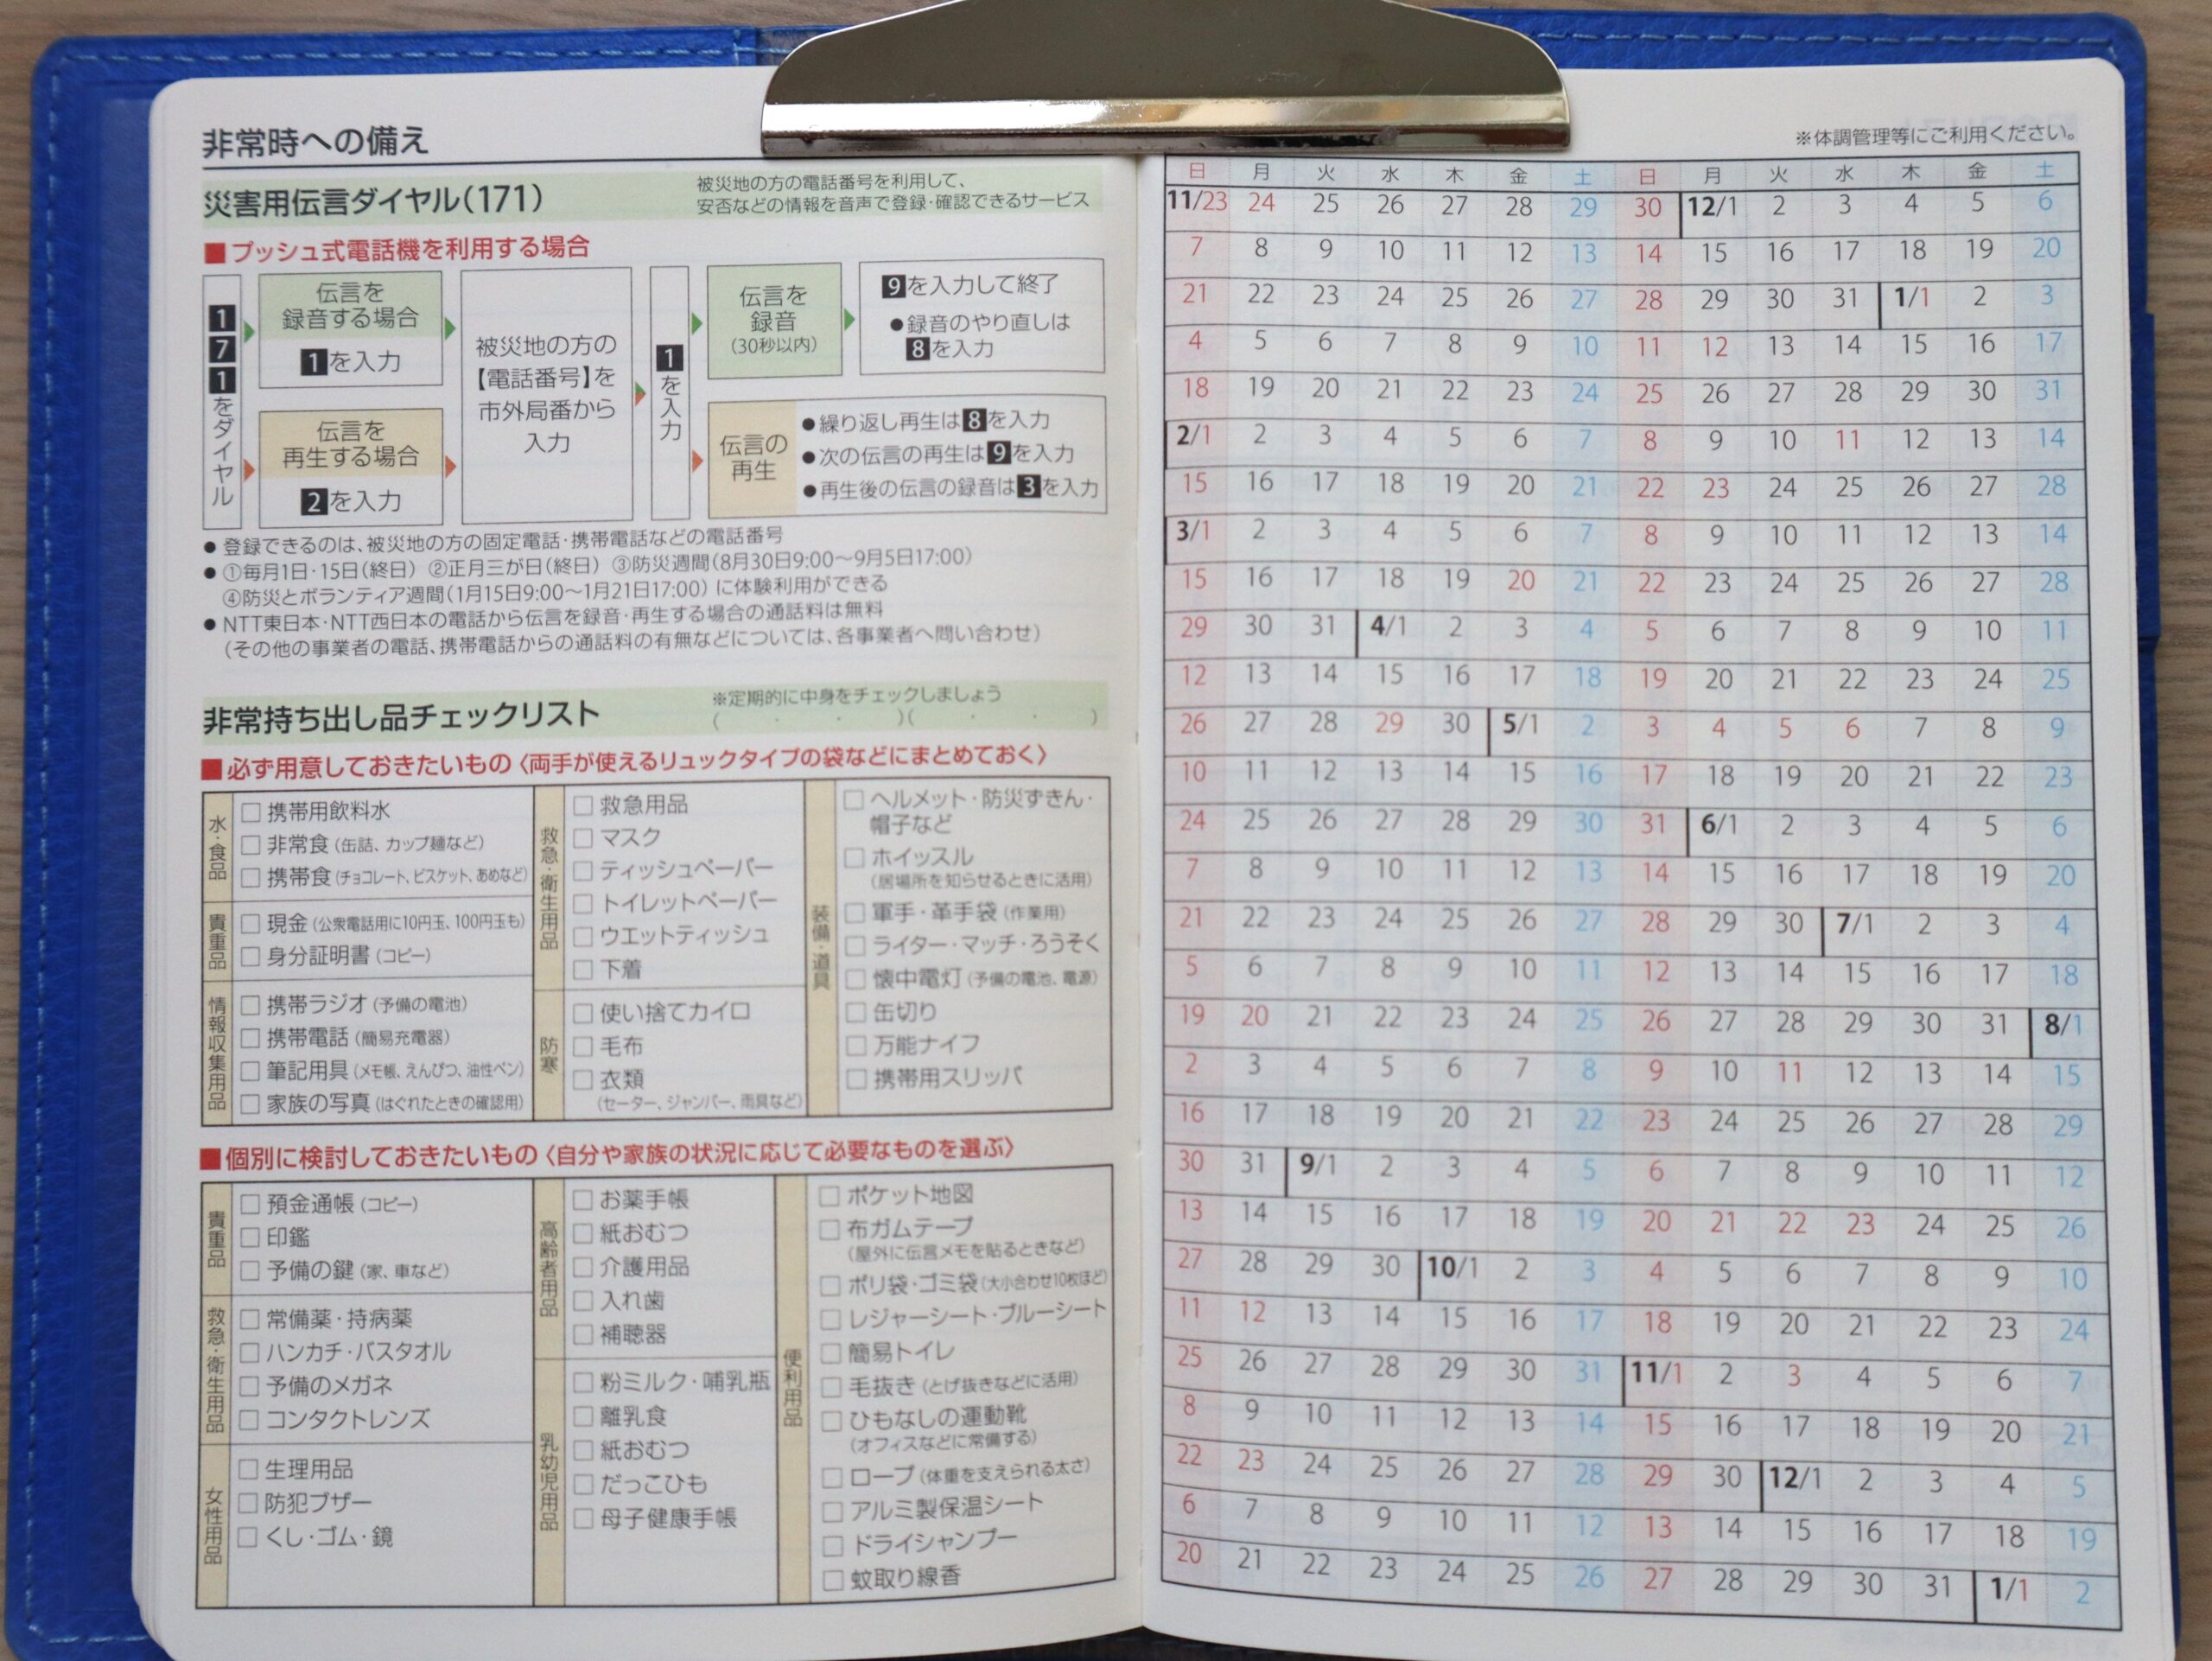 非常時への備え
災害用伝言ダイヤル(171)
被災地の方の電話番号を利用して、
安否などの情報を音声で登録・確認できるサービス
■プッシュ式電話機を利用する場合
171をダイヤル
伝言を
録音する場合
1を入力
伝言を
再生する場合
2を入力
被災地の方の
【電話番号】を
市外局番から
入力
1を入力
伝言を
録音
(30秒以内)
9を入力して終了
●録音のやり直しは
8を入力
伝言の
再生
●繰り返し再生は8を入力
●次の伝言の再生は9を入力
●再生後の伝言の録音は3を入力
●登録できるのは、被災地の方の固定電話・携帯電話などの電話番号
●①毎月1日・15日(終日) ②正月三が日(終日) ③防災週間(8月30日9:00〜9月5日17:00)
④防災とボランティア週間(1月15日9:00〜1月21日17:00) に体験利用ができる
●NTT東日本・NTT西日本の電話から伝言を録音・再生する場合の通話料は無料
(その他の事業者の電話、携帯電話からの通話料の有無などについては、各事業者へ問い合わせ)
非常持ち出し品チェックリスト
※定期的に中身をチェックしましょう
( ・ ・ )( ・ ・ )
■必ず用意しておきたいもの〈両手が使えるリュックタイプの袋などにまとめておく〉
水・食品
□携帯用飲料水
□非常食(缶詰、カップ麺など)
□携帯食(チョコレート、ビスケット、あめなど)
貴重品
□現金(公衆電話用に10円玉、100円玉も)
□身分証明書(コピー)
情報収集用品
□携帯ラジオ(予備の電池)
□携帯電話(簡易充電器)
□筆記用具(メモ帳、えんぴつ、油性ペン)
□家族の写真(はぐれたときの確認用)
救急・衛生用品
□救急用品
□マスク
□ティッシュペーパー
□トイレットペーパー
□ウエットティッシュ
□下着
防寒
□使い捨てカイロ
□毛布
□衣類
(セーター、ジャンパー、雨具など)
装備・道具
□ヘルメット・防災ずきん・
帽子など
□ホイッスル
(居場所を知らせるときに活用)
□軍手・革手袋(作業用)
□ライター・マッチ・ろうそく
□懐中電灯(予備の電池、電源)
□缶切り
□万能ナイフ
□携帯用スリッパ
■個別に検討しておきたいもの〈自分や家族の状況に応じて必要なものを選ぶ〉
貴重品
□預金通帳(コピー)
□印鑑
□予備の鍵(家、車など)
救急・衛生用品
□常備薬・持病薬
□ハンカチ・バスタオル
□予備のメガネ
□コンタクトレンズ
女性用品
□生理用品
□防犯ブザー
□くし・ゴム・鏡
高齢者用品
□お薬手帳
□紙おむつ
□介護用品
□入れ歯
□補聴器
乳幼児用品
□粉ミルク・哺乳瓶
□離乳食
□紙おむつ
□だっこひも
□母子健康手帳
便利用品
□ポケット地図
□布ガムテープ
(屋外に伝言メモを貼るときなど)
□ポリ袋・ゴミ袋(大小合わせ10枚ほど)
□レジャーシート・ブルーシート
□簡易トイレ
□毛抜き(とげ抜きなどに活用)
□ひもなしの運動靴
(オフィスなどに常備する)
□ロープ(体重を支えられる太さ)
□アルミ製保温シート
□ドライシャンプー
□蚊取り線香
※体調管理等にご利用ください。
日 月 火 水 木 金 土 日 月 火 水 木 金 土
11/23 24 25 26 27 28 29 30 12/1 2 3 4 5 6
7 8 9 10 11 12 13 14 15 16 17 18 19 20
21 22 23 24 25 26 27 28 29 30 31 1/1 2 3
4 5 6 7 8 9 10 11 12 13 14 15 16 17
18 19 20 21 22 23 24 25 26 27 28 29 30 31
2/1 2 3 4 5 6 7 8 9 10 11 12 13 14
15 16 17 18 19 20 21 22 23 24 25 26 27 28
3/1 2 3 4 5 6 7 8 9 10 11 12 13 14
15 16 17 18 19 20 21 22 23 24 25 26 27 28
29 30 31 4/1 2 3 4 5 6 7 8 9 10 11
12 13 14 15 16 17 18 19 20 21 22 23 24 25
26 27 28 29 30 5/1 2 3 4 5 6 7 8 9
10 11 12 13 14 15 16 17 18 19 20 21 22 23
24 25 26 27 28 29 30 31 6/1 2 3 4 5 6
7 8 9 10 11 12 13 14 15 16 17 18 19 20
21 22 23 24 25 26 27 28 29 30 7/1 2 3 4
5 6 7 8 9 10 11 12 13 14 15 16 17 18
19 20 21 22 23 24 25 26 27 28 29 30 31 8/1
2 3 4 5 6 7 8 9 10 11 12 13 14 15
16 17 18 19 20 21 22 23 24 25 26 27 28 29
30 31 9/1 2 3 4 5 6 7 8 9 10 11 12
13 14 15 16 17 18 19 20 21 22 23 24 25 26
27 28 29 30 10/1 2 3 4 5 6 7 8 9 10
11 12 13 14 15 16 17 18 19 20 21 22 23 24
25 26 27 28 29 30 31 11/1 2 3 4 5 6 7
8 9 10 11 12 13 14 15 16 17 18 19 20 21
22 23 24 25 26 27 28 29 30 12/1 2 3 4 5
6 7 8 9 10 11 12 13 14 15 16 17 18 19
20 21 22 23 24 25 26 27 28 29 30 31 1/1 2